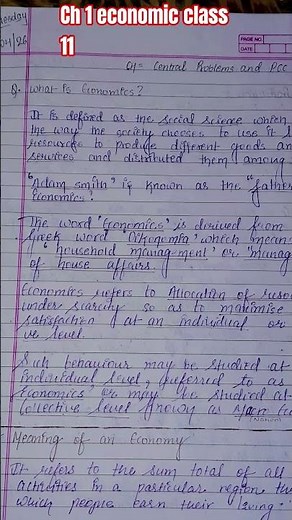 Ch 1 economic class
11
Tuesday
04/26
PAGE NO.
DATE
Ch= Central Problems and PCC
Q. What is Economics?
It is defined as the social science which
the way the society chooses to use it l
resources to produce different goods an
services and distributed them among
"Adam smith" is known as the "father
Economics"
The word 'Economics' is derived from
Greek word 'Oikonomia' which means
'household management' or 'manag
of house affairs.
Economics refers to Allocation of reso
under scarcity so as to maximise
satisfaction at an individual or
ve level.
Such behaviour may be studied at
individual level, referred to as
Economics or may be studied at
Collective level known as Macro Eco
Meaning of an Economy
It refers to the sum total of all
activities in a particular region th
which people earn their living.